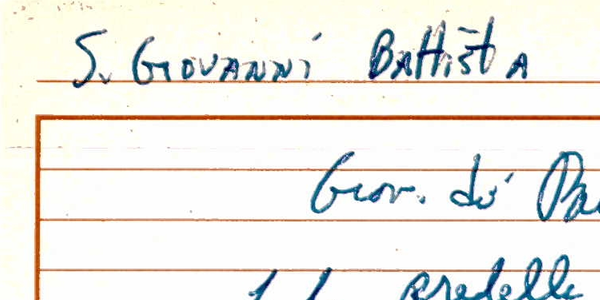 S. GIOVANNI BATTISTA
Giov. di
predelle